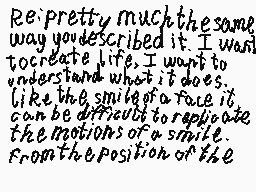 Re: pretty much the same
way you described it. I want
to create life, I want to
understand what it does.
like, the smile of a face it
can be difficult to replicate
the motions of a smile.
from the position of the